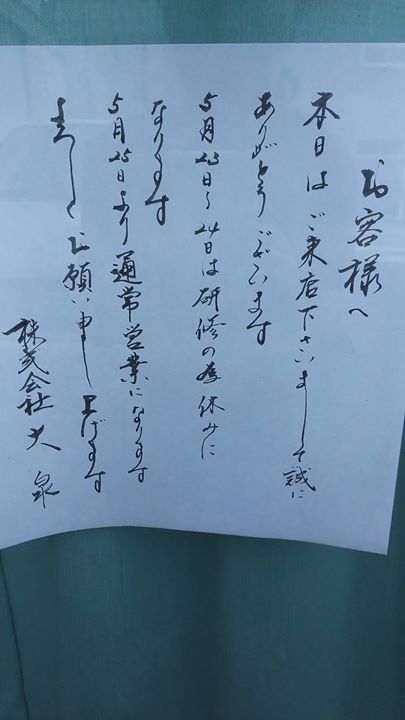 お客様へ
本日はご来店下さいまして誠に
ありがとうございます
5月23日〜24日は研修の為休みに
なります
5月25日より通常営業になります
よろしくお願い申し上げます
株式会社大泉